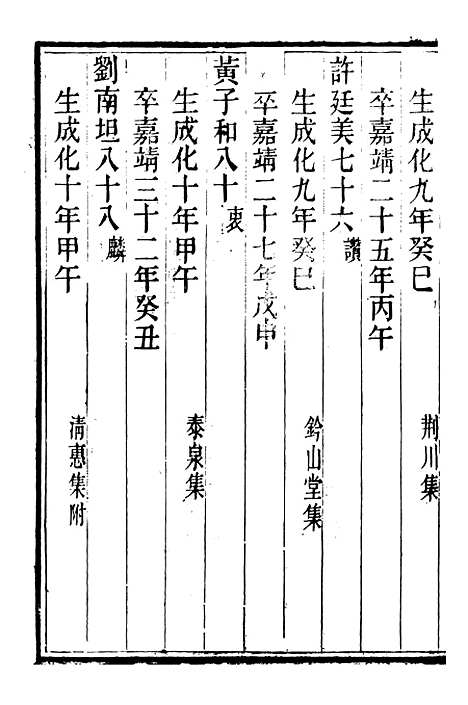 生成化九年癸巳 荆川集
卒嘉靖二十五年丙午
許廷美七十六讚
生成化九年癸巳 鈐山堂集
卒嘉靖二十七年戊申
黃子和八十衷
生成化十年甲午 泰泉集
卒嘉靖三十二年癸丑
劉南坦八十八麟
生成化十年甲午 清惠集附